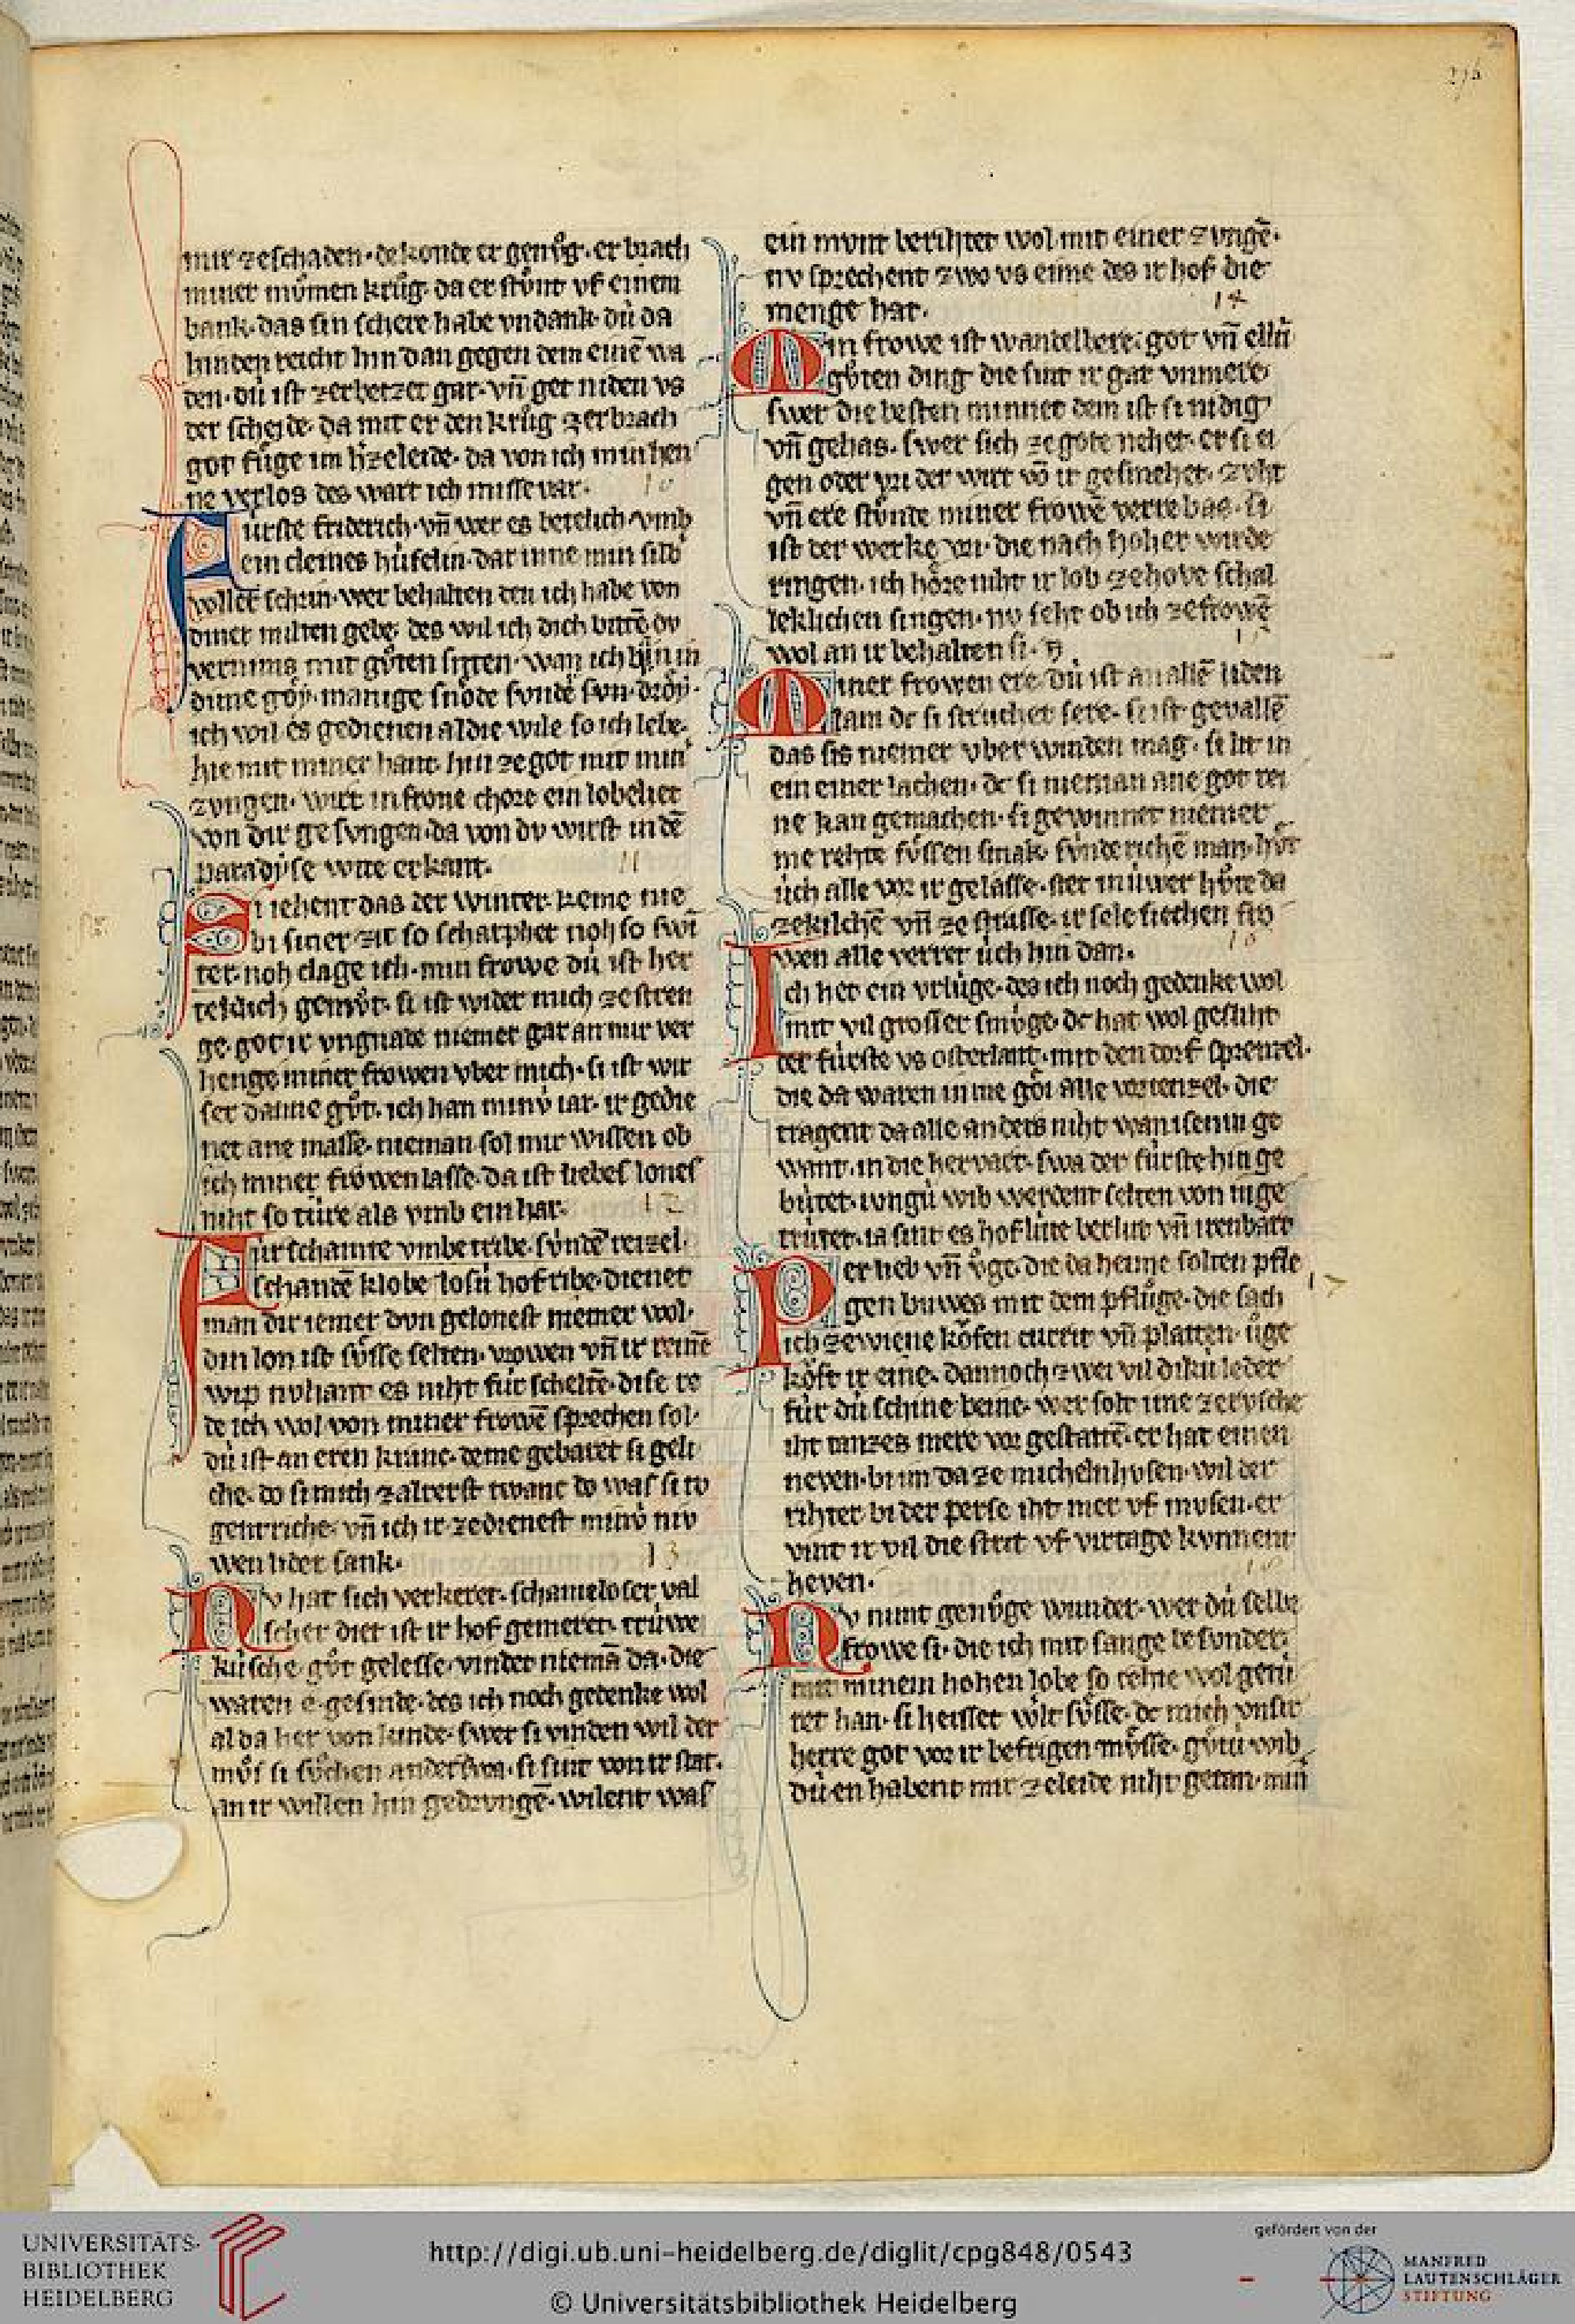 276
mir ze schaden· de konde er genv̊g· er brach
miner mv̊men krůg· da er stv̊nt vf einem
bank· das sin schere habe vndank· dú da
hinden reicht hin dan gegen dem einē wa
den· dú ist zerhetzet gar· vn̄ get niden vs
der scheide· da mit er den krůg zerbrach
got fůge im h̓zeleide· da von ich min hen
ne verlos des wart ich missevar· 10
úrste friderich· vn̄ wer es betelich· vmb
ein cleines húselin· dar inne min silb̓
voller schrin· wer behalten den ich habe von
diner milten gebe· des wil ich dich bittē dv
vernims mit gv̊ten sitten· wan ich bin in
dime gȯy· manige snȯde svnde svn· drȯy·
ich wil es gedienen al die wile so ich lebe·
hie mit miner hant· hin ze got mit min̓
zvngen· wirt in frone chore ein lobeliet
von dir gesvngen· da von dv wirst in dē
paradyse wite erkant· 11
Si iehent das der winter· keme nie
bi siner zit so scharpher noh so swi
ter· noh clage ich· min frowe dú ist her
teklich gemv̊t· si ist wider mich ze stren
ge· got ir vngnade niemer gar an mir ver
henge miner frowen vber mich· si ist wir
ser danne gv̊t· ich han minú iar· ir gedie
net ane masse· nieman sol mir wissen ob
ich miner frȯwen lasse· da ist liebes lones
niht so túre als vmb ein har· 12
ür schamte vmbetribe· súndē reizel·
schandē klobe· losú hoftribe· dienet
man dir iemer dvn gelonest niemer wol·
din lon ist sv̊sse selten· vrowen vn̄ ir reinē
wip nv hant es niht für scheltē· dise re
de ich wol von miner frowē sprechen sol·
dú ist an eren kranc· deme gebaret si geli
che· do si mich zalrerst twanc do was si tv
gentriche· vn̄ ich ir ze dienest minú nú
wen lider sank· 13
Nv hat sich verkeret· schameloser val
scher diet ist ir hof gemeret· trúwe
kúsche gv̊t gelesse vindet niemā da· die
waren e· gesinde· des ich noch gedenke wol
al da her von kinde· swer si vinden wil der
mv̊s si sv̊chen anderswa· si sint von ir stat·
an ir willen hin gedrvngē· wilent was
ein mvnt berihtet wol mit einer zvngē·
nv sprechent zwo vs eime des ir hof die
menge hat· 14
Min frowe ist wandelbere· got vn̄ ellú
gv̊ten ding die sint ir gar vnmere·
swer die besten minnet dem ist si nidig
vn̄ gehas· swer sich ze gote nehet· er si ei
gen oder vri der wirt vō ir gesmehet· zvht
vn̄ ere stv̊nde miner frowē verre bas· si
ist der werke vri· die nach hoher wirde
ringen· ich hȯre niht ir lob ze hove schal
leklichen singen· nv seht ob ich ze frowē
wol an ir behalten si· 15
Miner frowen ere· dú ist an allē liden
lam· dc si struchet sere· si ist gevallē
das sis niemer vber winden mag· si lit in
ein einer lachen· dc si nieman ane got rei
ne kan gemachen· si gewinnet niemer
me rehte sv̊ssen smak· súnderichē man· hv̊t
úch alle vor ir gelasse· stet in úwer hv̊te da
ze kilchē vn̄ ze strasse· ir sele siechen frȯ
wen alle verret úch hin dan· 16
Ich het ein vrlúge· des ich noch gedenke wol
mit vil grosser smv̊ge· dc hat wol gestiht
der fúrste vs osterlant· mit den dorf sprenzel·
die da waren in me gȯi alle vortenzel· die
tragent da alle anders niht wan isenin ge
want· in die hervart· swa der fúrste hin ge
bútet· ivngú wib werdent selten von in ge
trútet· ia sint es hoflúte berlut vn̄ irenbart
Per lieb vn̄ v̊ge· die da heime solten pfle
gen buwes mit dem pflůge· die sach 17
ich ze wiene kȯfen cureit vn̄ platten· v̊ge
kȯft ir eine· dannoch zwei vil dikú leder
für dú schine beine· wer solt ime zervsche
iht tanzes mere vor gestattē· er hat einen
neven· bi im da ze michelnhvsen· wil der
rihter bi der perse iht mer vf mvsen· er
vint ir vil die strit vf virtage kvnnent
heven· 18
Nv nimt genv̊ge wunder· wer dú selbe
frowe si· die ich mit sange besunder·
mit minem hohen lobe so rehte wol geti
ret han· si heisset wlt sv̊sse· dc mich vnser
herre got vor ir befrigen mv̊sse· gv̊tú wib
dú en habent mir ze leide niht getan· min
UNIVERSITÄTS-
BIBLIOTHEK
HEIDELBERG
http://digi.ub.uni-heidelberg.de/diglit/cpg848/0543
© Universitätsbibliothek Heidelberg
gefördert von der
MANFRED
LAUTENSCHLÄGER
STIFTUNG